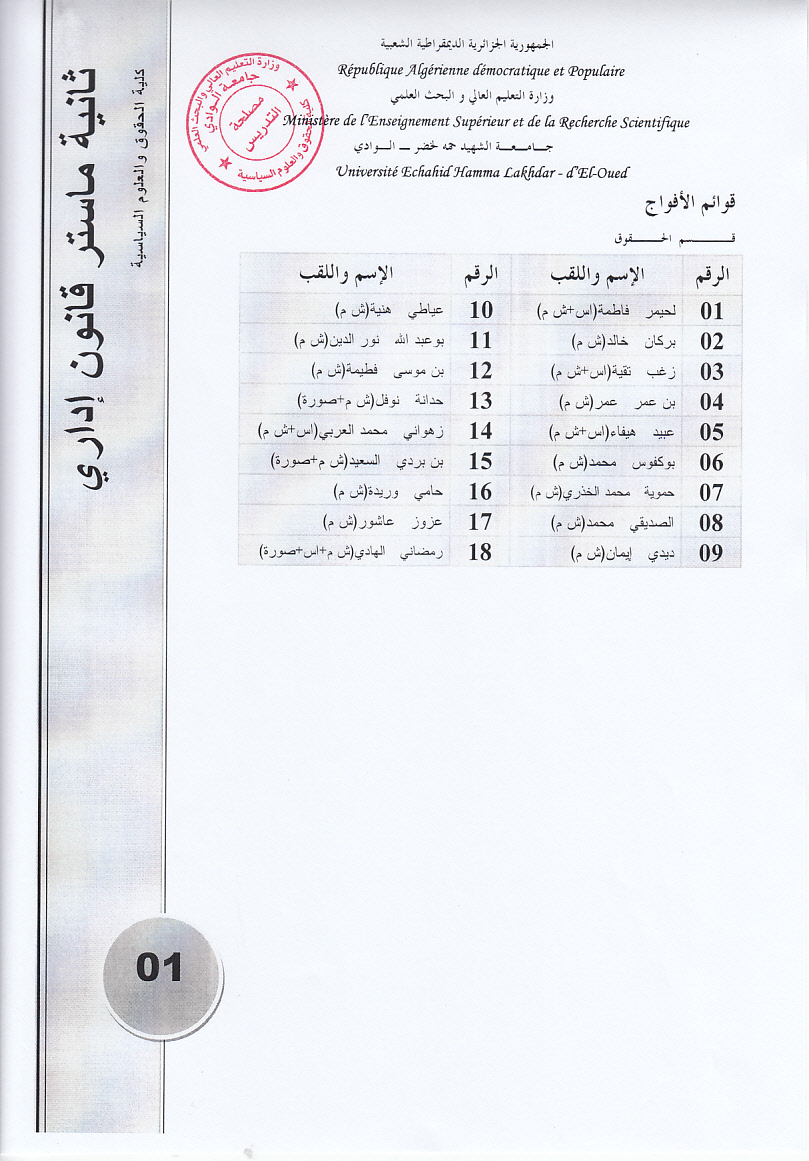 الجمهورية الجزائرية الديمقراطية الشعبية
République Algérienne démocratique et Populaire
وزارة التعليم العالي و البحث العلمي
Ministère de l'Enseignement Supérieur et de la Recherche Scientifique
جـامـعـة الشهيد حمه لخضر ـ الـوادي
Université Echahid Hamma Lakhdar - d'El-Oued
وزارة التعليم العالي والبحث العلمي
جامعة الوادي
مصلحة
التدريس
كلية الحقوق والعلوم السياسية
قوائم الأفواج
قـسـم الحـقـوق
الرقم الإسم واللقب الرقم الإسم واللقب
01 لحيمر فاطمة(اس+ش م) 10 عياطي هنية(ش م)
02 بركان خالد(ش م) 11 بوعبد الله نور الدين(ش م)
03 زغب تقية(اس+ش م) 12 بن موسى فطيمة(ش م)
04 بن عمر عمر(ش م) 13 حدانة نوفل(ش م+صورة)
05 عبيد هيفاء(اس+ش م) 14 زهواني محمد العربي(اس+ش م)
06 بوكفوس محمد(ش م) 15 بن بردي السعيد(ش م+صورة)
07 حموية محمد الخذري(ش م) 16 حامي وريدة(ش م)
08 الصديقي محمد(ش م) 17 عزوز عاشور(ش م)
09 ديدي إيمان(ش م) 18 رمضاني الهادي(ش م+اس+صورة)
ثانية ماستر قانون إداري
كلية الحقوق والعلوم السياسية
01